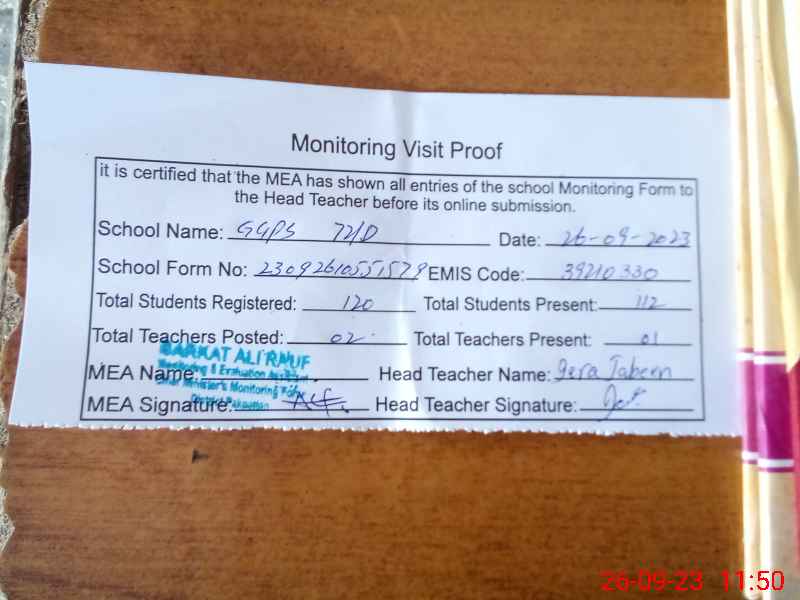 Monitoring Visit Proof
it is certified that the MEA has shown all entries of the school Monitoring Form to
the Head Teacher before its online submission.
School Name: GGPS 72/D Date: 26-09-2023
School Form No: 23092610551579 EMIS Code: 39210330
Total Students Registered: 120 Total Students Present: 112
Total Teachers Posted: 02 Total Teachers Present: 01
BARKAT ALI RAUF
Monitoring & Evaluation Assistant
MEA Name: Head Teacher Name: Iera Jabeen
Chief Minister's Monitoring Force
District Pakpattan
MEA Signature: Head Teacher Signature:
26-09-23 11:50